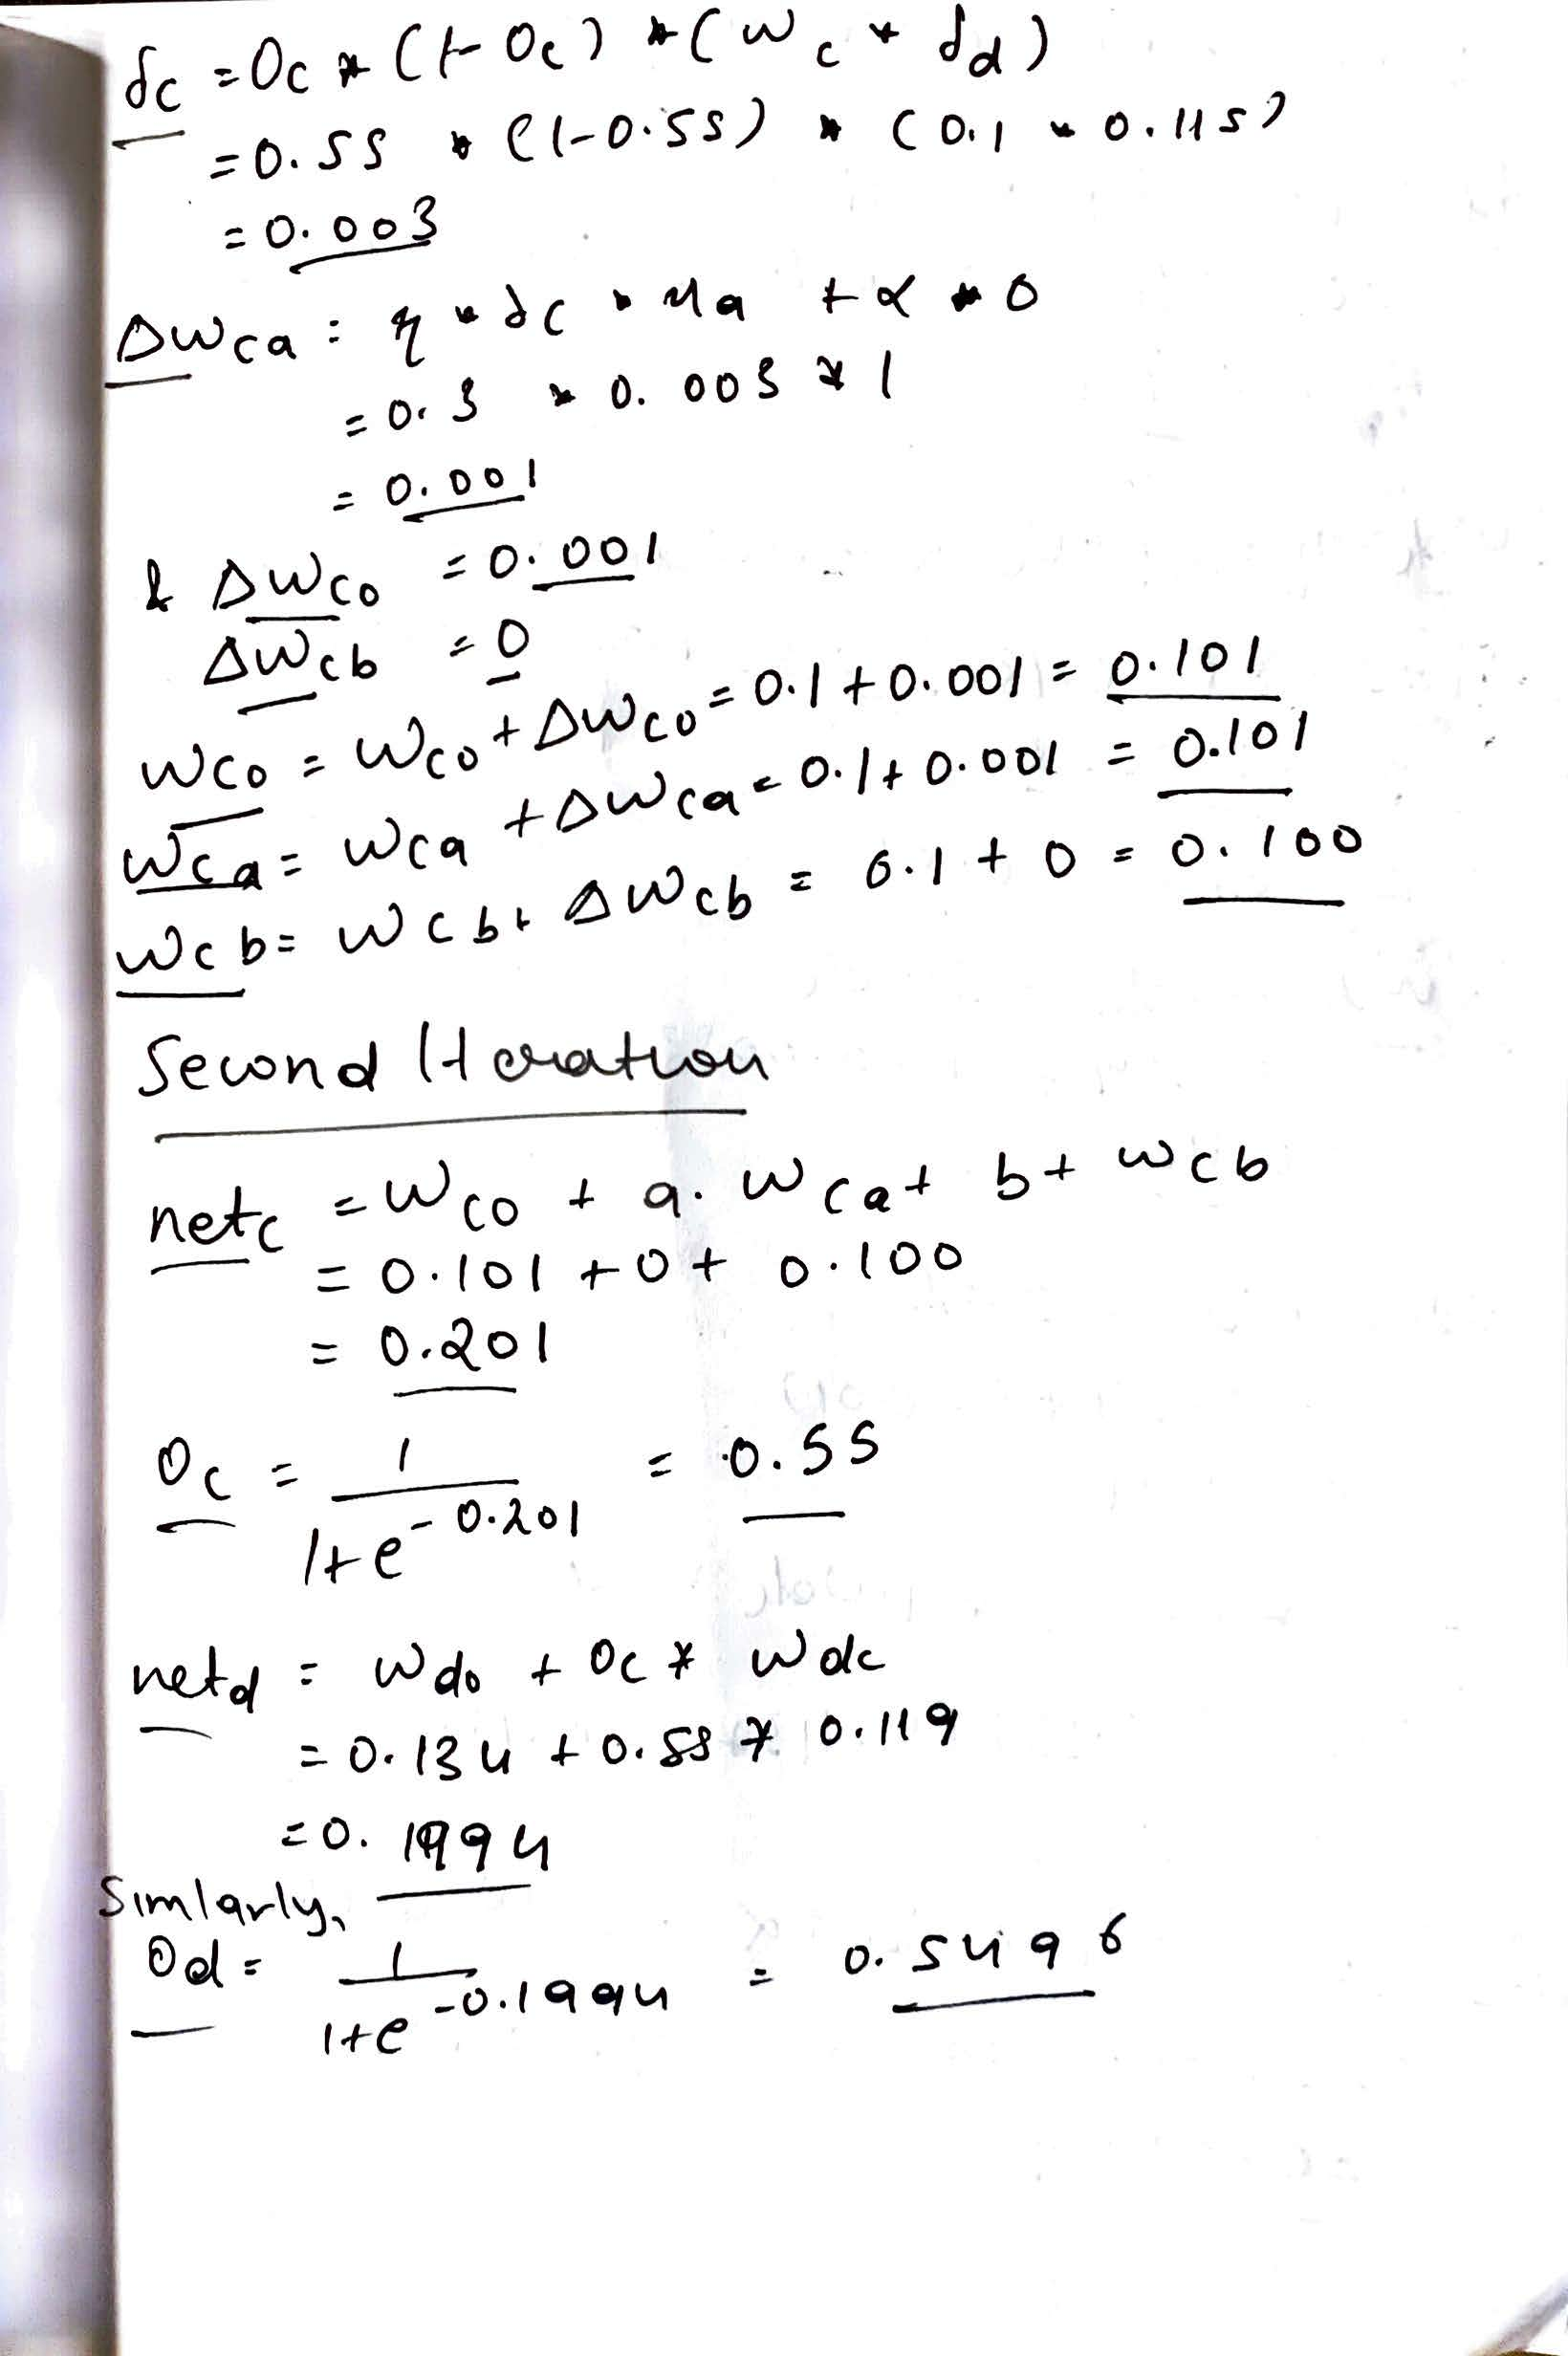 δc = Oc * (1-Oc) * (wc * δd)
= 0.55 * (1-0.55) * (0.1 * 0.115)
= 0.003
Δwca = η * δc * xa + α * 0
= 0.3 * 0.003 * 1
= 0.001
& Δwco = 0.001
Δwcb = 0
wco = wco + Δwco = 0.1 + 0.001 = 0.101
wca = wca + Δwca = 0.1 + 0.001 = 0.101
wcb = wcb + Δwcb = 0.1 + 0 = 0.100
Second Iteration
netc = wco + a. wca + b + wcb
= 0.101 + 0 + 0.100
= 0.201
Oc = 1/(1+e^-0.201) = 0.55
netd = wdo + Oc * wdc
= 0.134 + 0.55 * 0.119
= 0.1994
Simlarly,
Od = 1/(1+e^-0.1994) = 0.5496